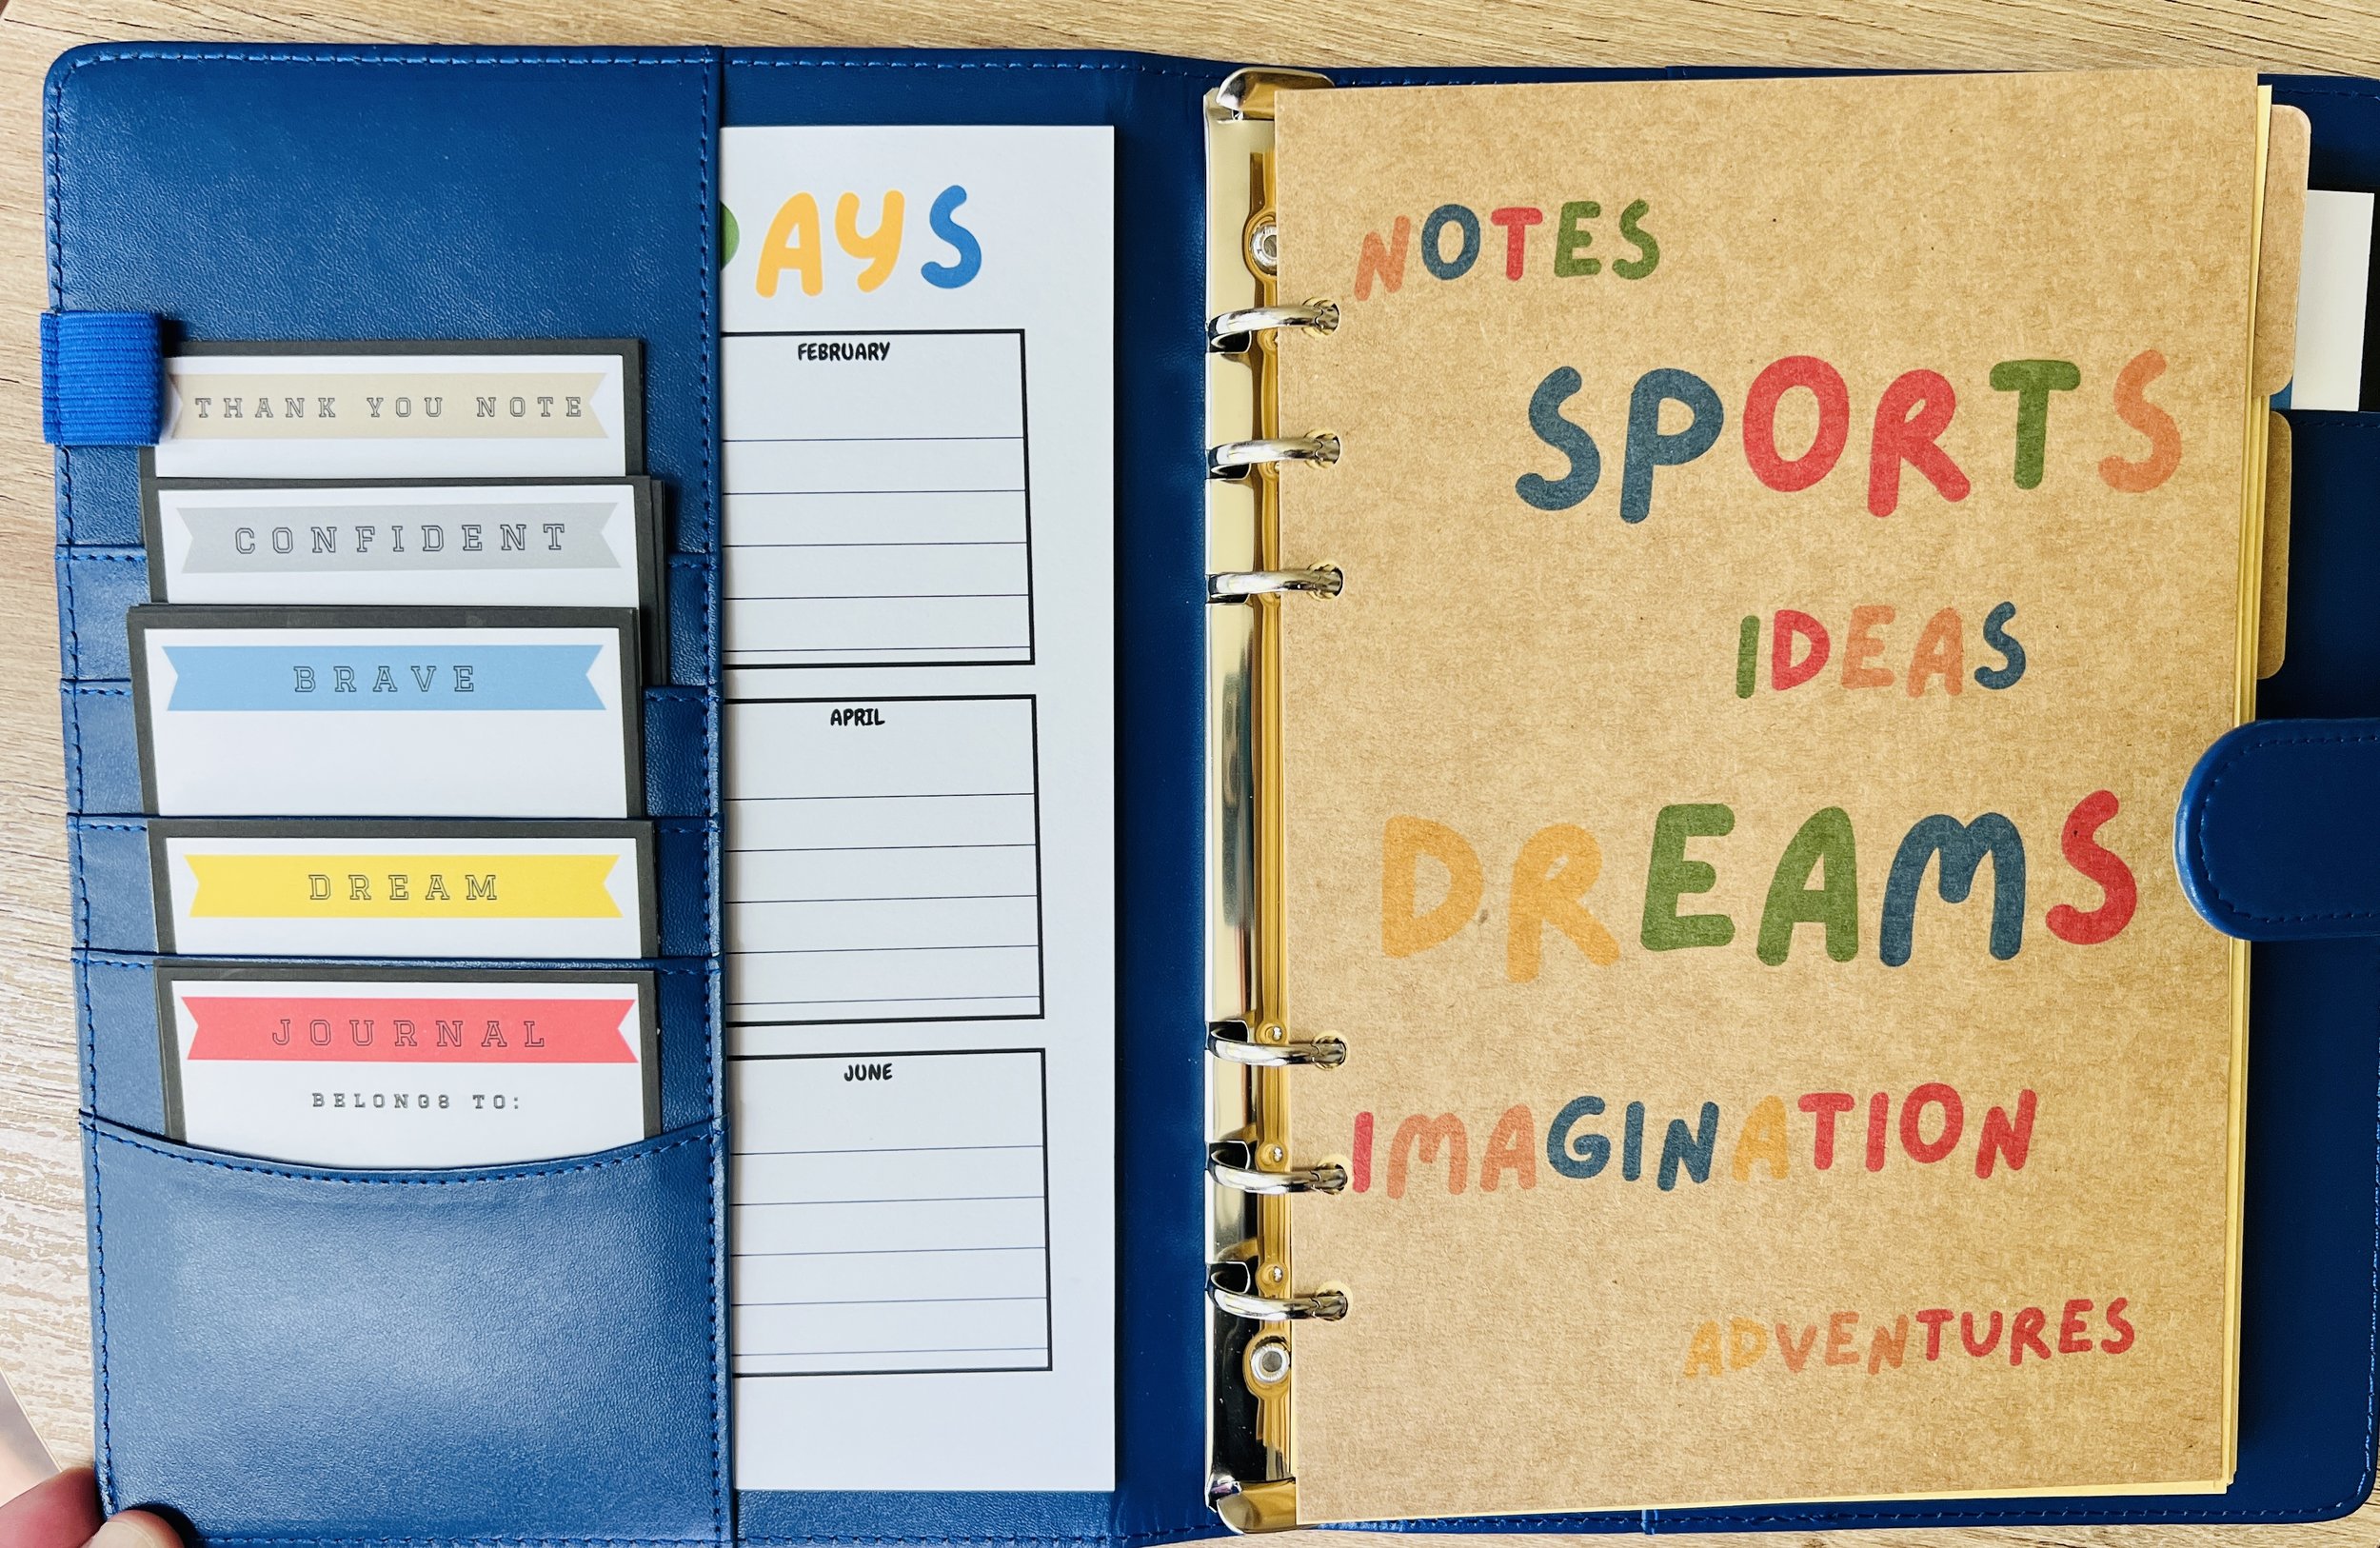 THANK YOU NOTE
CONFIDENT
BRAVE
DREAM
JOURNAL
BELONGS TO:
DAYS
FEBRUARY
APRIL
JUNE
NOTES
SPORTS
IDEAS
DREAMS
IMAGINATION
ADVENTURES